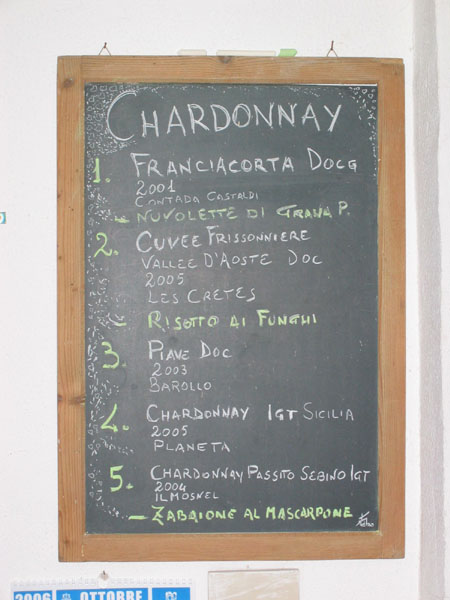 CHARDONNAY
1. FRANCIACORTA DOCG
2001
CONTADA CASTALDI
– NUVOLETTE DI GRANA P.
2. CUVEE FRISSONNIERE
VALLEE D'AOSTE DOC
2005
LES CRETES
– RISOTTO AI FUNGHI
3. PIAVE DOC
2003
BAROLLO
4. CHARDONNAY IGT SICILIA
2005
PLANETA
5. CHARDONNAY PASSITO SEBINO IGT
2004
IL MOSNEL
– ZABAIONE AL MASCARPONE
2006 OTTOBRE